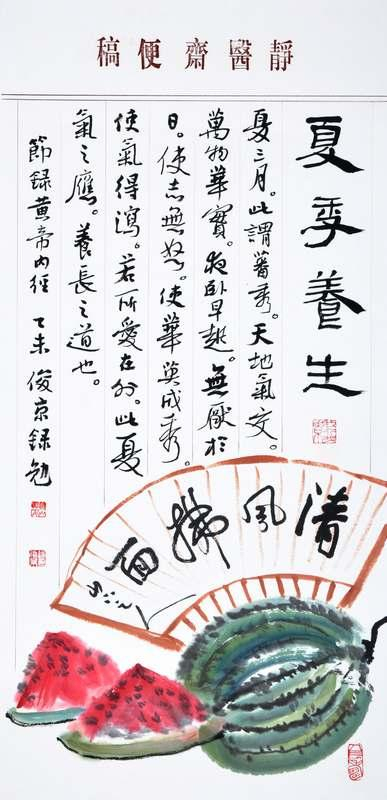 靜醫齋便稿
夏季養生
夏三月。此謂蕃秀。天地氣交。
萬物華實。夜卧早起。無厭於
日。使志無怒。使華英成秀。
使氣得瀉。若所愛在外。此夏
氣之應。養長之道也。
節録黃帝内經 乙未 俊京録勉
清風拂面